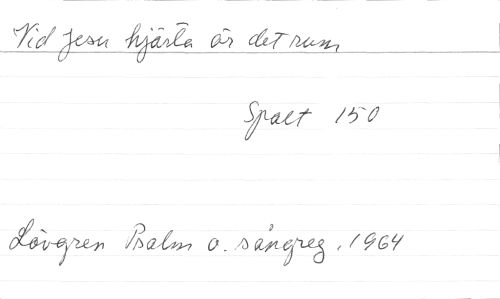 Vid Jesu hjärta är det rum
Spalt 150
Lövgren Psalm o. sångreg. 1964